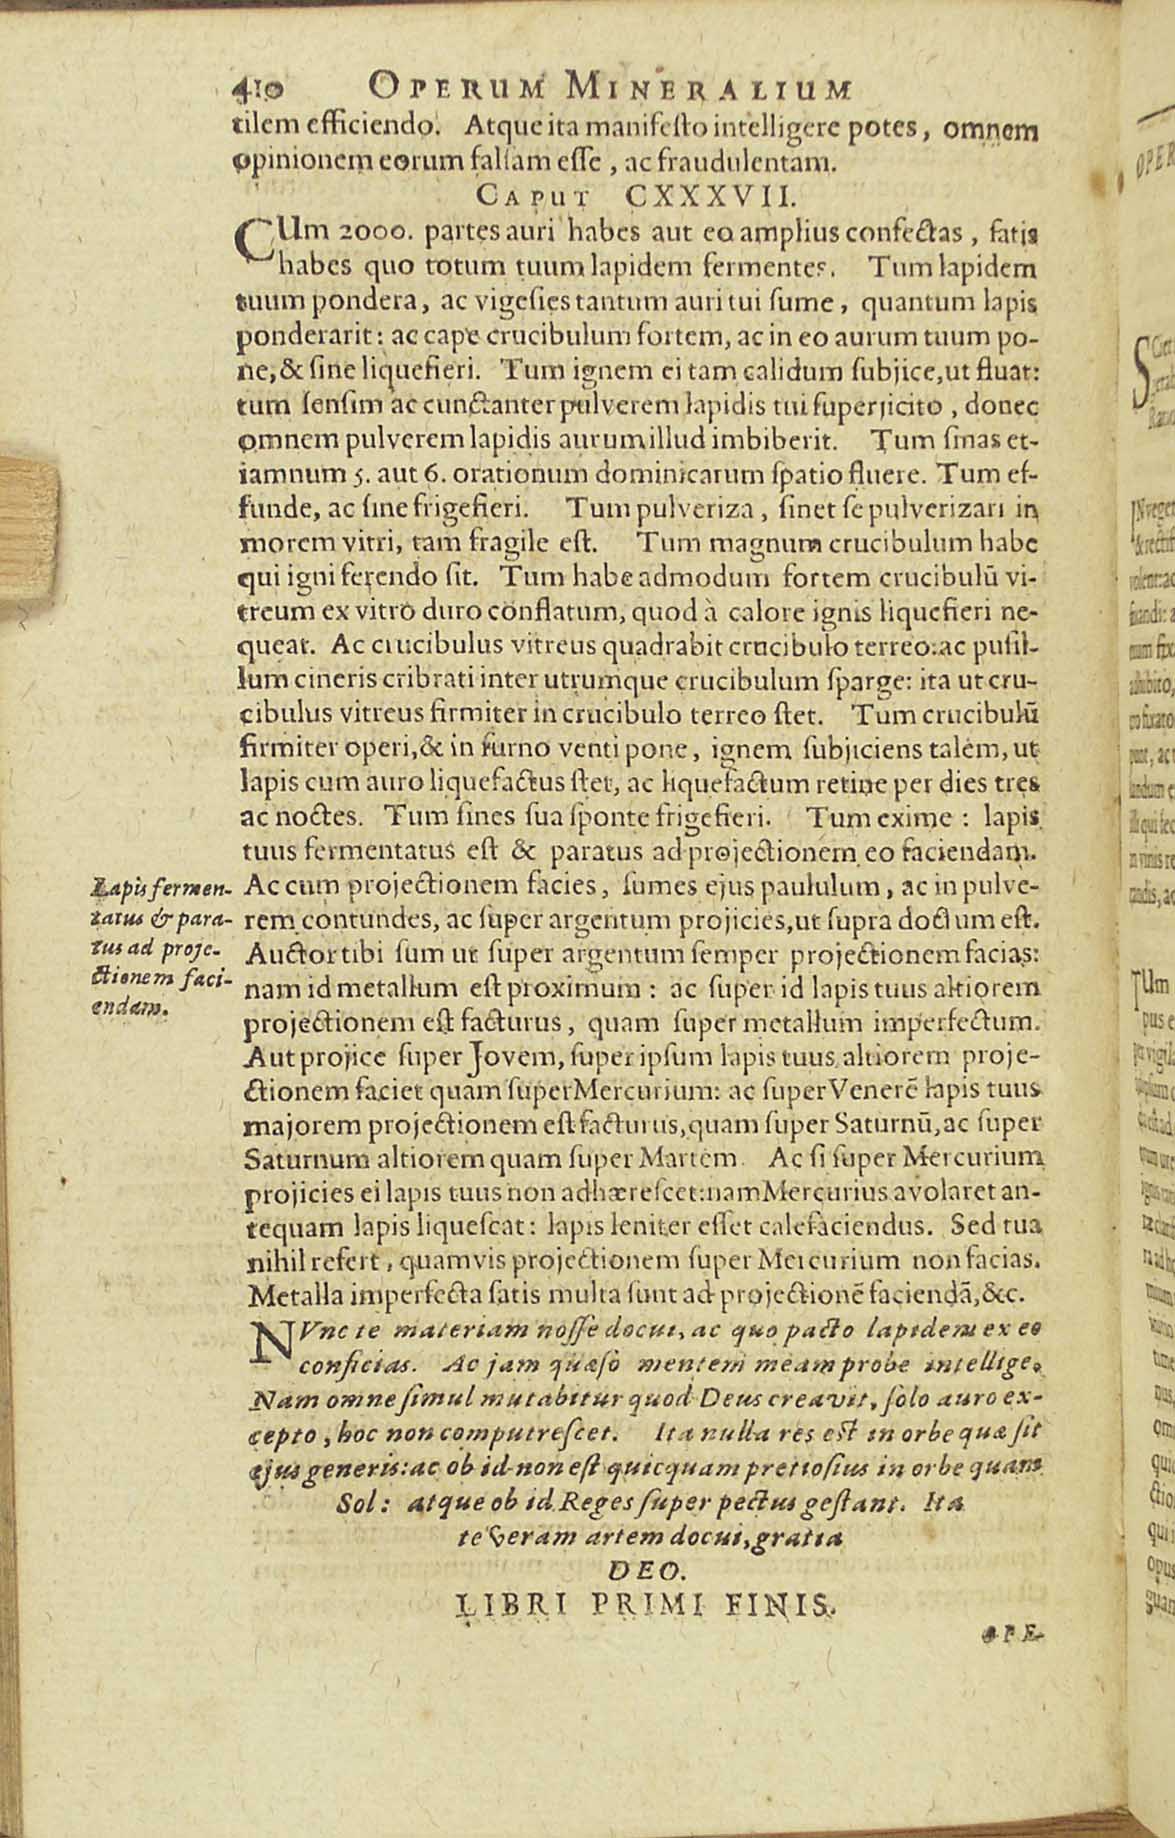 410 OPERUM MINERALIUM
tilem efficiendo. Atque ita manifesto intelligere potes, omnem
opinionem eorum falsam esse, ac fraudulentam.
CAPUT CXXXVII.
CUm 2000. partes auri habes aut eo amplius confectas, satis
habes quo totum tuum lapidem fermentes. Tum lapidem
tuum pondera, ac vigesies tantum auri tui sume, quantum lapis
ponderarit: ac cape crucibulum fortem, ac in eo aurum tuum po-
ne, & sine liquefieri. Tum ignem ei tam calidum subjice, ut fluat:
tum sensim ac cunctanter pulverem lapidis tui superjicito, donec
omnem pulverem lapidis aurum illud imbiberit. Tum sinas et-
iamnum 5. aut 6. orationum dominicarum spatio fluere. Tum ef-
funde, ac sine frigefieri. Tum pulveriza, sinet se pulverizari in
morem vitri, tam fragile est. Tum magnum crucibulum habe
qui igni ferendo sit. Tum habe admodum fortem crucibulū vi-
treum ex vitro duro conflatum, quod à calore ignis liquefieri ne-
queat. Ac crucibulus vitreus quadrabit crucibulo terreo: ac pusil-
lum cineris cribrati inter utrumque crucibulum sparge: ita ut cru-
cibulus vitreus firmiter in crucibulo terreo stet. Tum crucibulū
firmiter operi, & in furno venti pone, ignem subjiciens talem, ut
lapis cum auro liquefactus stet, ac liquefactum retine per dies tres
ac noctes. Tum sines sua sponte frigefieri. Tum exime: lapis
tuus fermentatus est & paratus ad projectionem eo faciendam.
Ac cum projectionem facies, sumes ejus paululum, ac in pulve-
rem contundes, ac super argentum projicies, ut supra doctum est.
Auctor tibi sum ut super argentum semper projectionem facias:
nam id metallum est proximum: ac super id lapis tuus altiorem
projectionem est facturus, quam super metallum imperfectum.
Aut projice super Jovem, super ipsum lapis tuus altiorem proje-
ctionem faciet quam super Mercurium: ac super Venerē lapis tuus
majorem projectionem est facturus, quam super Saturnū, ac super
Saturnum altiorem quam super Martem. Ac si super Mercurium
projicies ei lapis tuus non adhærescet: nam Mercurius avolaret an-
tequam lapis liquescat: lapis leniter esset calefaciendus. Sed tua
nihil refert, quamvis projectionem super Mercurium non facias.
Metalla imperfecta satis multa sunt ad projectionē faciendā, &c.
Lapis fermen-
tatus & para-
tus ad proje-
ctionem faci-
endam.
NVnc te materiam nosse docui, ac quo pacto lapidem ex eo
conficias. Ac jam quæso mentem meam probe intellige.
Nam omne simul mutabitur quod Deus creavit, solo auro ex-
cepto, hoc non computrescet. Ita nulla res est in orbe quæ sit
ejus generis: ac ob id non est quicquam prettosius in orbe quam
Sol: atque ob id Reges super pectus gestant. Ita
te veram artem docui, gratia
DEO.
LIBRI PRIMI FINIS.
OPE-